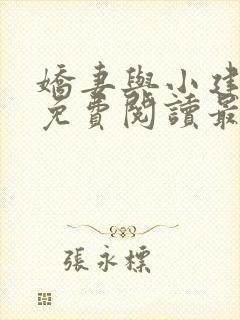 嬌妻與小建
免費閱讀最
張永標